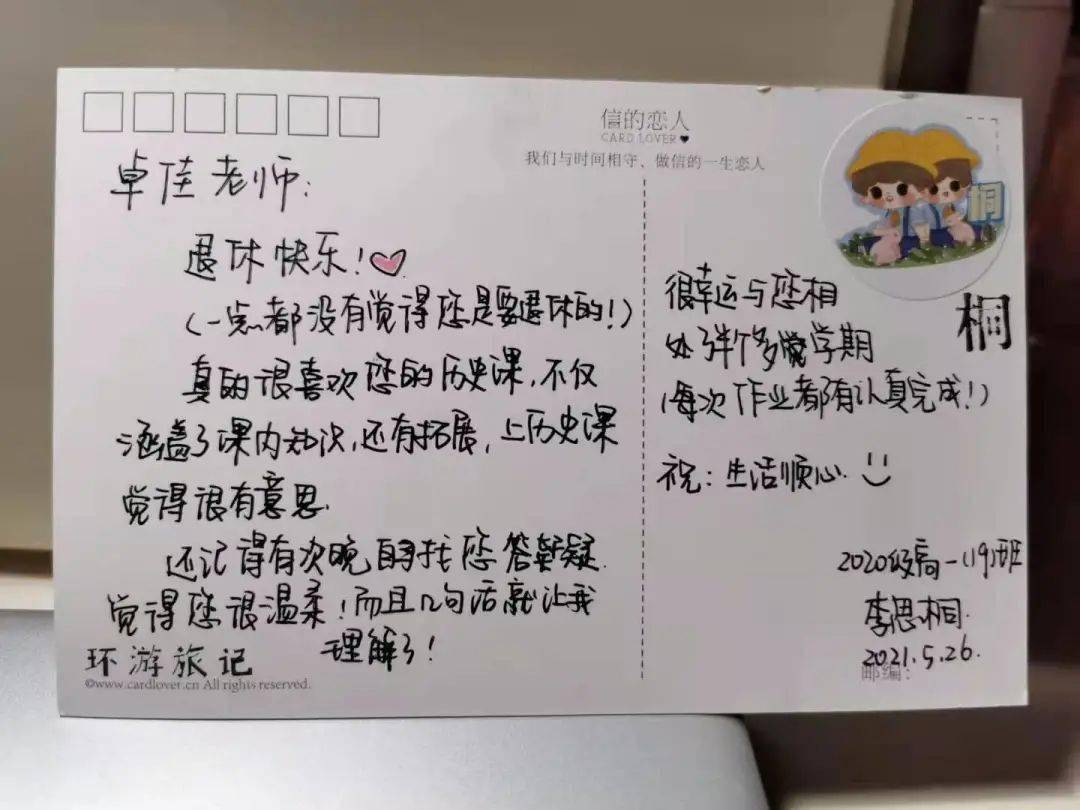 信的恋人
CARD LOVER
我们与时间相守、做信的一生恋人
卓佳老师:
退休快乐!
(一点都没有觉得您是要退休的!)
真的很喜欢您的历史课,不仅
涵盖了课内知识,还有拓展,上历史课
觉得很有意思.
还记得有次晚自习找您答疑
觉得您很温柔!而且几句话就让我
理解了!
环游旅记
©www.cardlover.cn All rights reserved.
桐
桐
很幸运与您相
处了半个多学期
(每次作业都有认真完成!)
祝:生活顺心.
2020级高一(19)班
李思桐.
2021.5.26.
邮编: